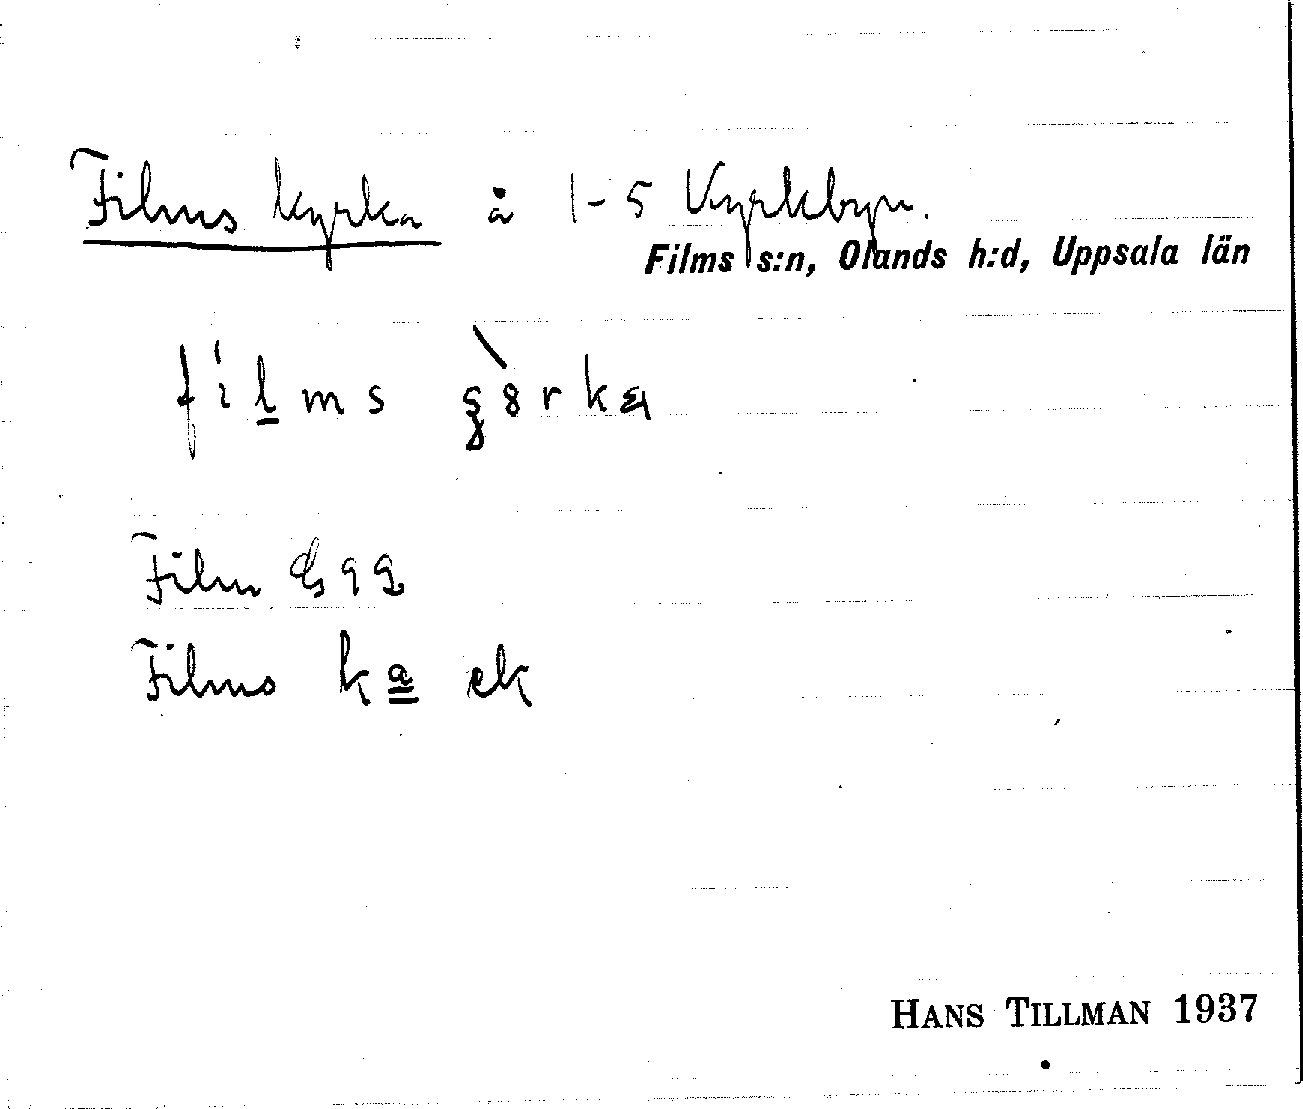 Films kyrka å 1-5 Kyrkbyn.
Films s:n, Olands h:d, Uppsala län
films
Film
Films ka ek
HANS TILLMAN 1937